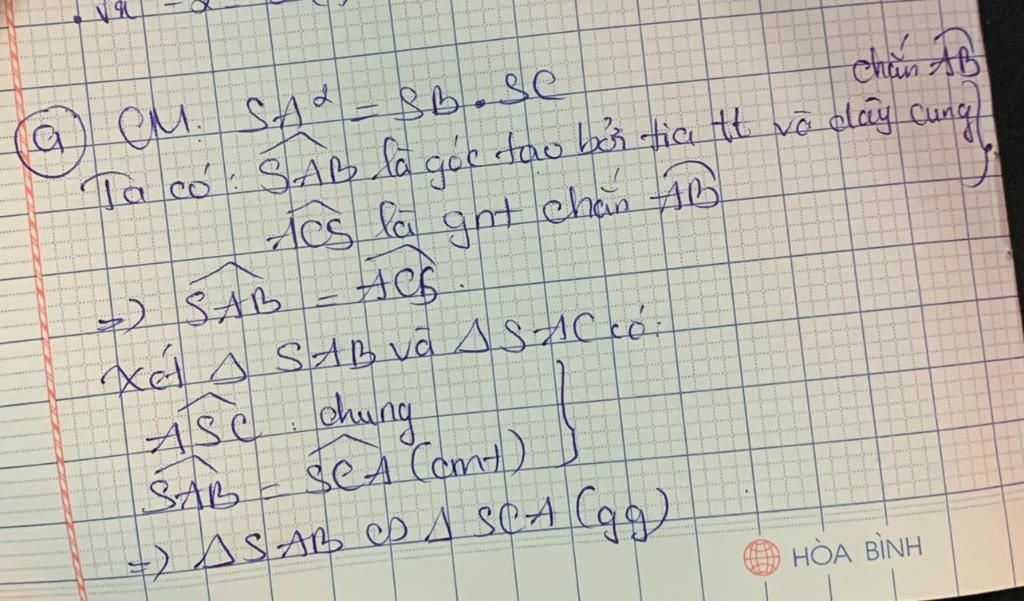 a) CM: SA² = SB.SC
Ta có: SAB là góc tạo bởi tia tt và dây cung
chắn AB
ACS là gnt chắn AB
=> SAB = ACS.
Xét Δ SAB và Δ SAC có:
ASC : chung
SAB = SCA (cmt)
=> Δ SAB ∽ Δ SCA (gg)
HÒA BÌNH